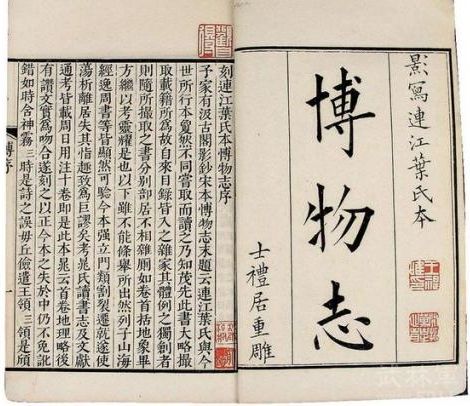 影寫連江葉氏本
博物志
士禮居重雕
刻連江葉氏本博物志序
予家有汲古閣影鈔宋本博物志末題云連江葉氏與今
世所行本夐然不同嘗取而讀之乃知茂先此書大略撮
取載籍所為故自來目錄皆入之雜家其體例之獨創者
則隨所撮取之書分別部居不相雜厠如卷首括地象畢
方繼以考靈耀是也以下雖不能條舉所出然列子山海
經逸周書等皆顯然可驗今本强立門類割裂遷就遂使
蕩析離居失其指趣致為巨謬矣考晁氏讀書志及文獻
通考皆載周日用注十卷即是此本晁云首卷地理略後
有讚文實為吻合遂刻之以正今本之失於中仍不免訛
錯如時含神霧三時是詩之誤毋丘儉遣王領三領是頎
博序
一